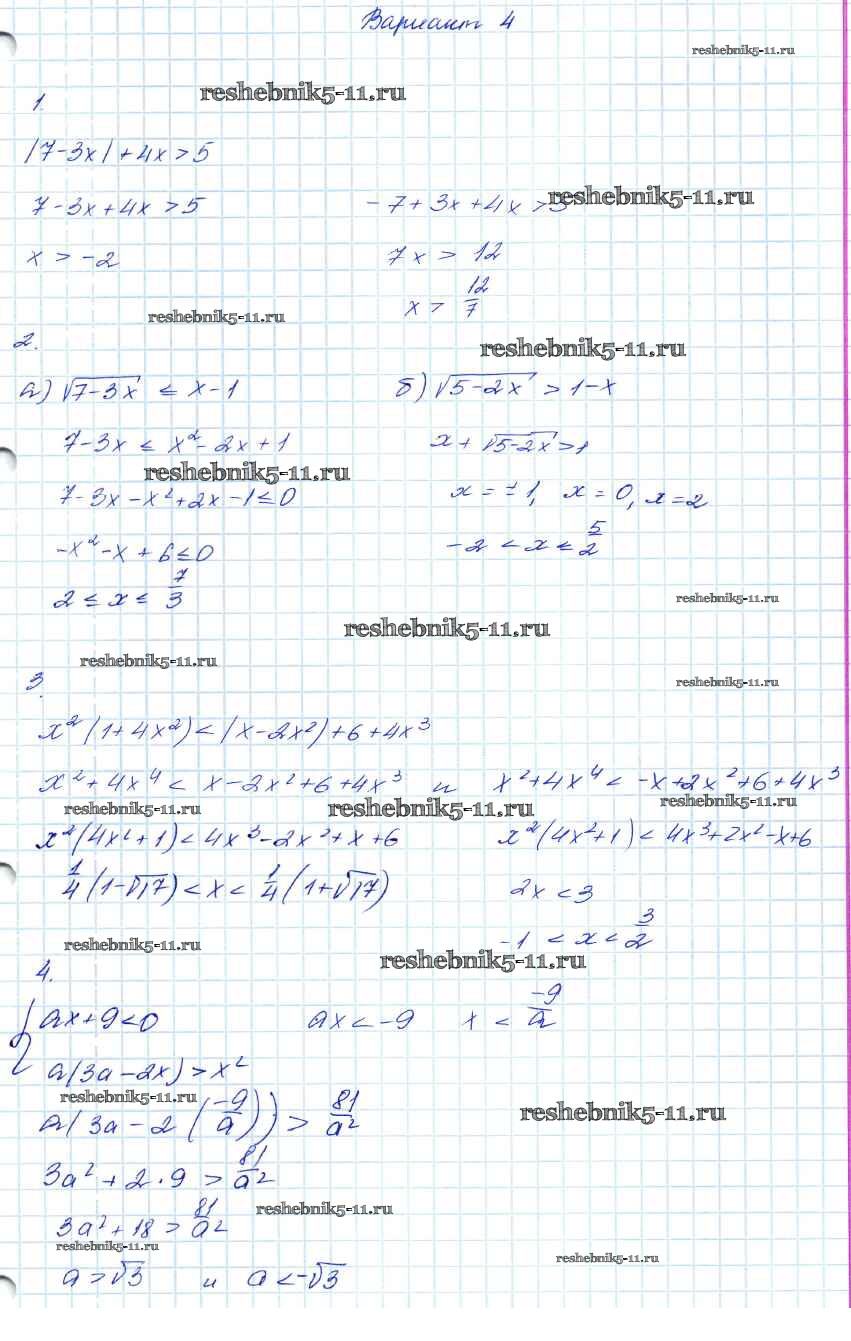 Вариант 4
reshebnik5-11.ru
reshebnik5-11.ru
1.
|7-3x|+4x>5
7-3x+4x>5 -7+3x+4x>5
reshebnik5-11.ru
x>-2 7x>12
x>12/7
reshebnik5-11.ru
2.
reshebnik5-11.ru
а) √7-3x ≤ x-1 б) √5-2x > 1-x
7-3x ≤ x²-2x+1 x+√5-2x>1
reshebnik5-11.ru
7-3x-x²+2x-1≤0 x=±1, x=0, x=2
-x²-x+6≤0 -2<x≤5/2
2≤x≤7/3
reshebnik5-11.ru
reshebnik5-11.ru
reshebnik5-11.ru
3.
reshebnik5-11.ru
x²(1+4x²)<|x-2x²)+6+4x³
x²+4x⁴<x-2x²+6+4x³ и x²+4x⁴<-x+2x²+6+4x³
reshebnik5-11.ru reshebnik5-11.ru reshebnik5-11.ru
x²(4x²+1)<4x³-2x²+x+6 x²(4x²+1)<4x³+2x²-x+6
1/4(1-√17)<x<1/4(1+√17) 2x<3
-1<x<3/2
reshebnik5-11.ru
reshebnik5-11.ru
4.
{ax+9<0 ax<-9 x<-9/a
a(3a-2x)>x²
reshebnik5-11.ru
a(3a-2(-9/a))>81/a²
reshebnik5-11.ru
3a²+2·9>81/a²
reshebnik5-11.ru
3a²+18>81/a²
reshebnik5-11.ru
reshebnik5-11.ru
a>√3 и a<-√3